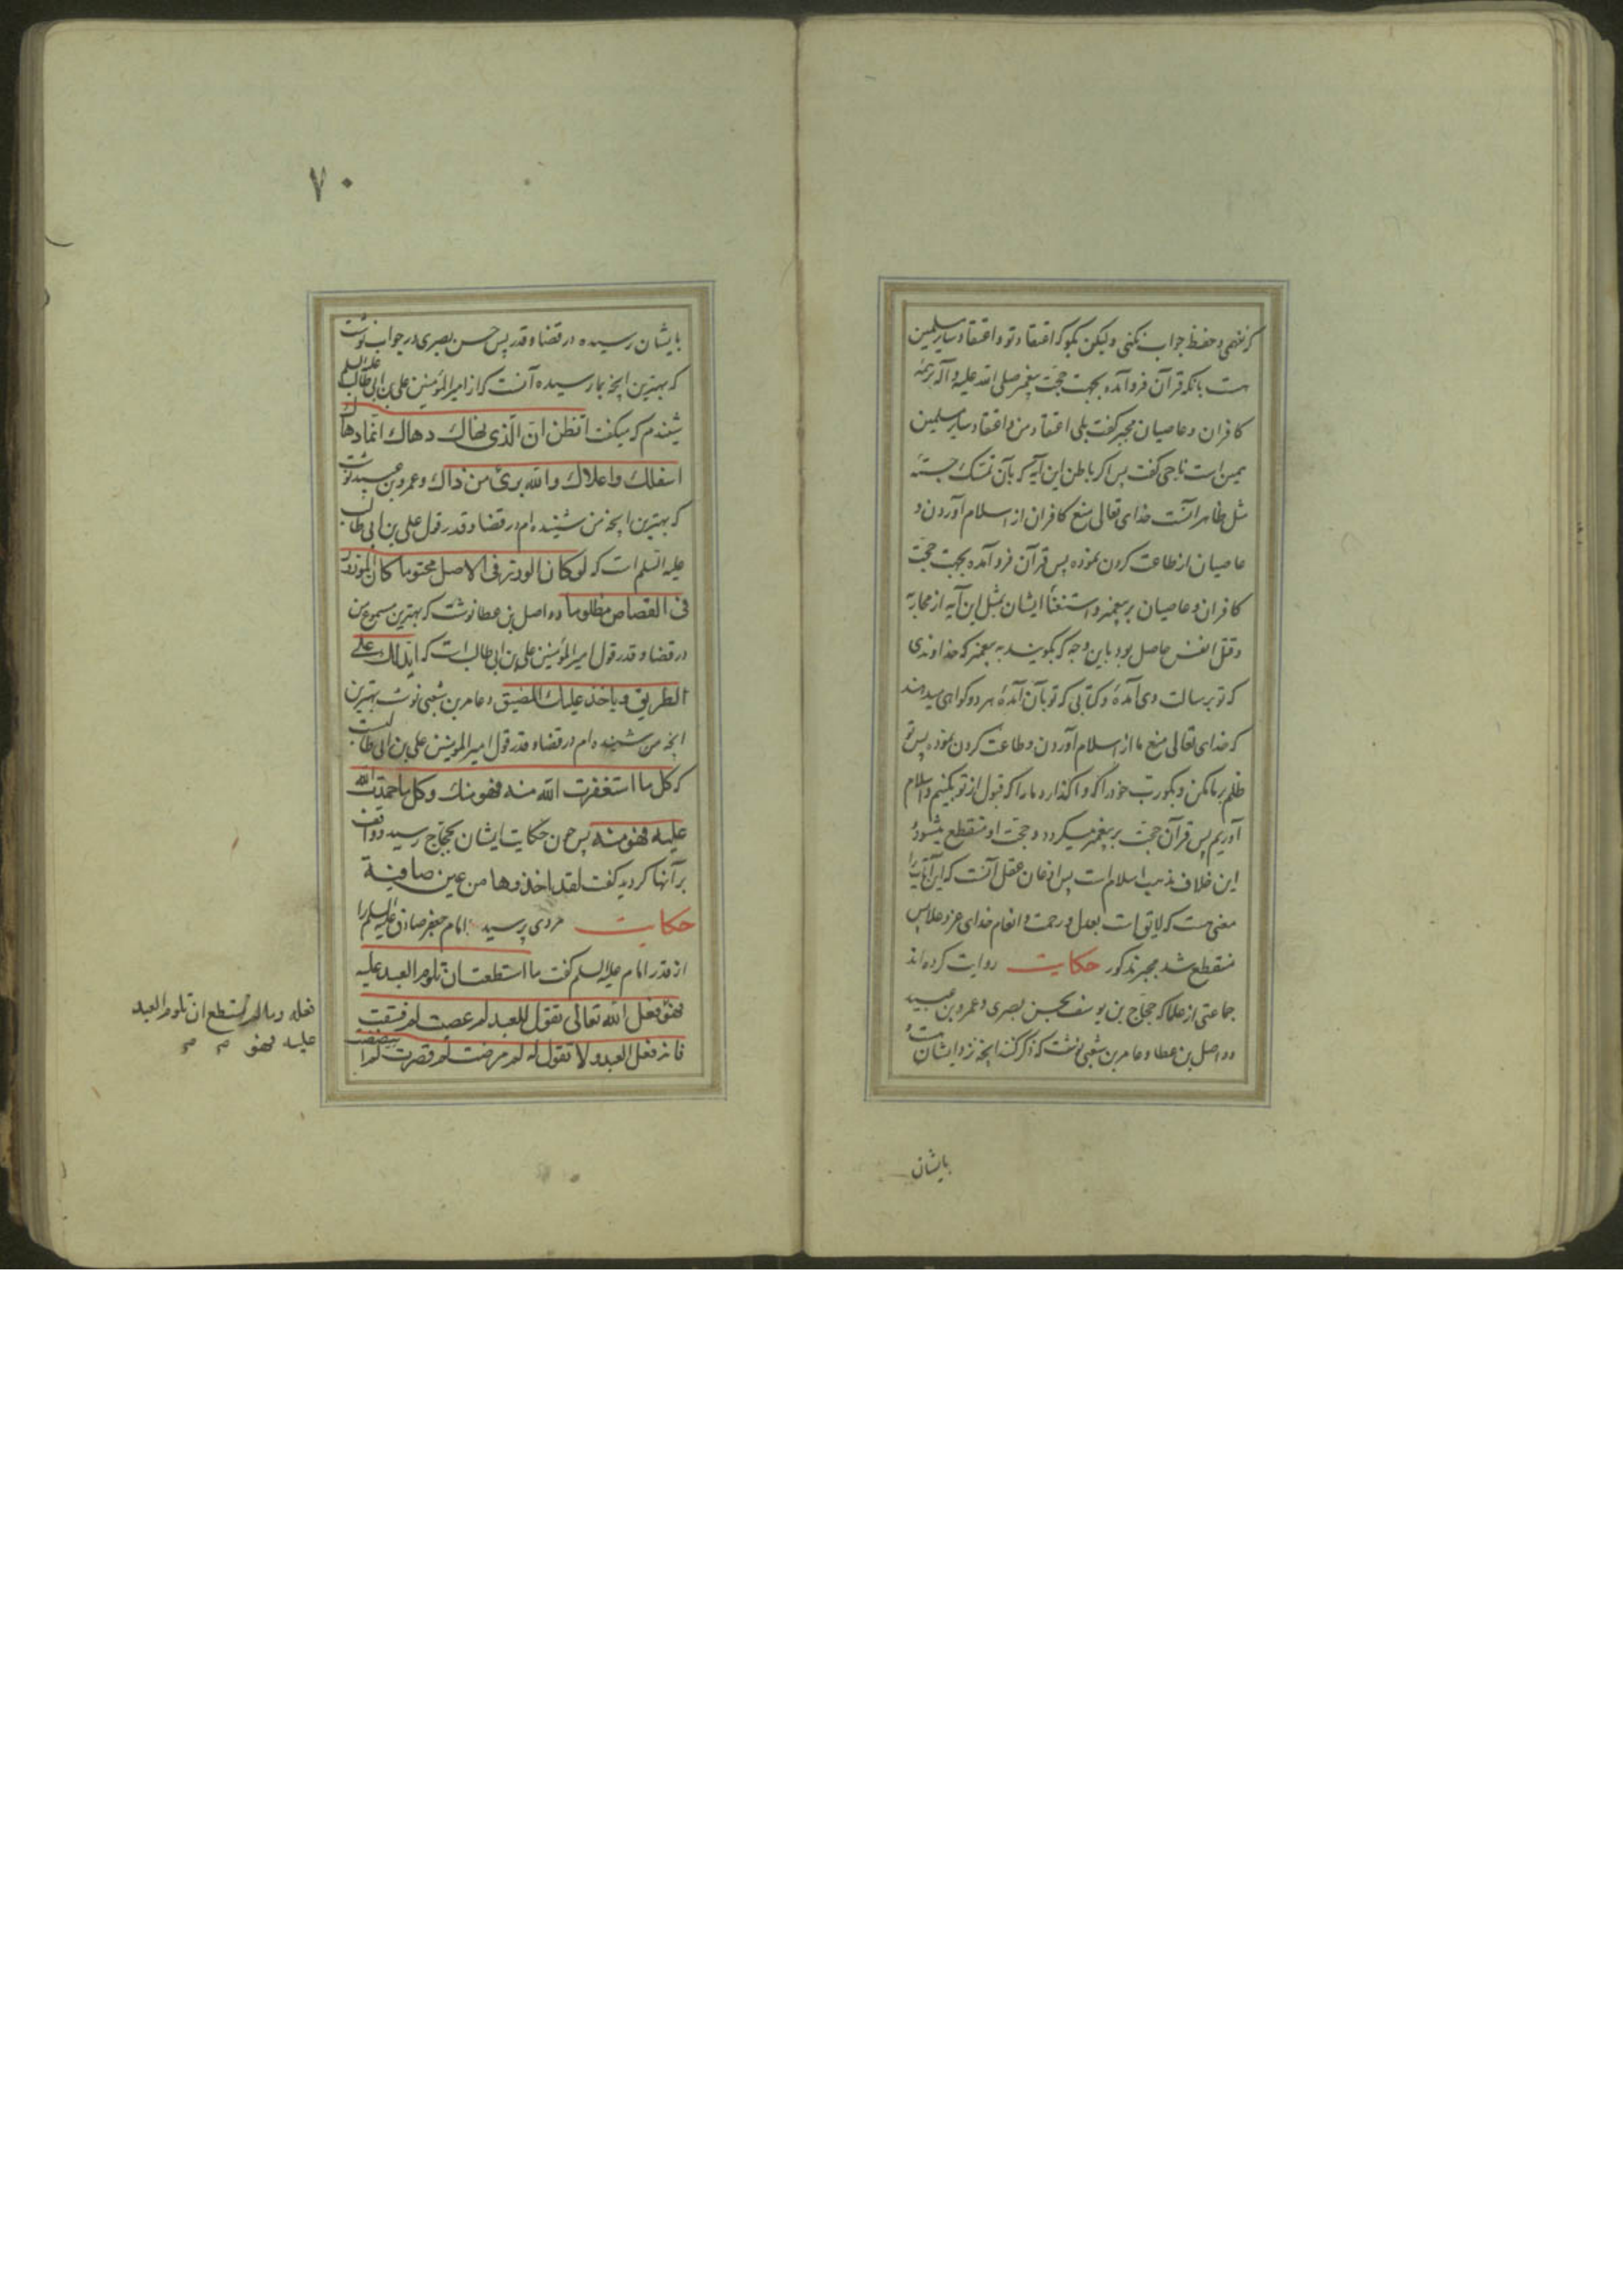 که نفهمی و حفظ جواب نکنی ولیکن بگو که اعتقاد تو و اعتقاد سایر مسلمین
هست بانکه قرآن فرود آمده بجهت حجّت پیغمبر صلی الله علیه و آله بر همهٔ
کافران و عاصیان مجبر گفت بلی اعتقاد من و اعتقاد سایر مسلمین
همین است ناجی گفت پس اگر باطن این آیه که بآن تمسّک جستهٔ
مثل ظاهر آنست خدای تعالی منع کافران از اسلام آوردن و
عاصیان از طاعت کردن نموده پس قرآن فرود آمده بجهت حجّت
کافران و عاصیان بر پیغمبر و استغنأ ایشان بمثل این آیه از محاربه
و قتل انفس حاصل بود باین وجه که بگویند به پیغمبر که خداوندی
که تو برسالت وی آمدهٔ و کتابی که تو بآن آمدهٔ هر دو گواهی میدهند
که خدای تعالی منع ما از اسلام آوردن و طاعت کردن نموده پس تو
ظلم بر ما مکن و بگو ربّ خود را که واگذارد ما را که قبول از تو بکنیم و اسلام
آوریم پس قرآن حجّت بر پیغمبر میگردد و حجّت او منقطع میشود و
این خلاف مذهب اسلام است پس اذعان عقل آنست که این آیات را
معنی هست که لایق است بعدل و رحمت و انعام خدای عزّ و علا پس
منقطع شد مجبر مذکور حکایت روایت کرده‌اند
جماعتی از علما که حجّاج بن یوسف بحسن بصری و عمرو بن عبید
و واصل بن عطا و عامر بن شعبی نوشت که ذکر کنند آنچه نزد ایشانست و
بایشان
۷۰
بایشان رسیده در قضا و قدر پس حسن بصری در جواب نوشت
که بهترین آنچه بما رسیده آنست که از امیر المؤمنین علی بن ابی طالب علیه السلم
شنیدم که میگفت اتظن ان الّذی نهاك دهاك انّما دهاك
اسفلك واعلاك والله برئ من ذاك و عمرو بن عبید نوشت
که بهترین آنچه من شنیده‌ام در قضا و قدر قول علی بن ابی طالب
علیه السّلم است که لوکان الوزر فی الاصل محتوما کان الموزور
فی القصاص مظلوما و واصل بن عطا نوشت که بهترین مسموع من
در قضا و قدر قول امیر المؤمنین علی بن ابی طالب است که ایدلك علی
الطریق و یاخذ علیك المضیق و عامر بن شعبی نوشت بهترین
آنچه من شنیده‌ام در قضا و قدر قول امیر المومنین علی بن ابی طالبست
که کل ما استغفرت الله منه فهو منك وکل ما حمدت الله
علیه فهو منه پس چون حکایت ایشان بحجّاج رسید و واقف
بر آنها گردید گفت لقد اخذوها من عین صافیة
حکایت مردی پرسید امام جعفر صادق علیه السلم را
از قدر امام علیه السلم گفت ما استطعت ان تلوم العبد علیه
فهو فعل الله تعالی یقول للعبد لم عصیت لم فسقت
فانه فعل العبد ولا تقول له لم مرضت لم قصرت لم ابیضضت
فعله وما لم تستطع ان تلوم العبد
علیه فهو